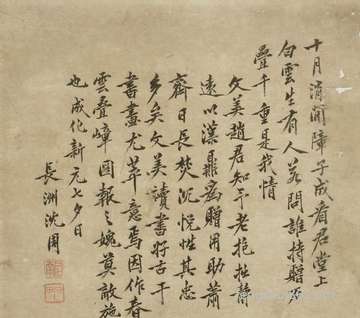 十月涓開障子成看君堂上
白雲生有人若問誰持贈万
疊千重是我情
文美趙君知予老抱拙靜
遠以漢鼎為贈用助蕭
齋日長焚沉悅性其忠
多矣文美讀書好古于
書畫尤萃意焉因作春
雲疊嶂圖報之媿莫敵施
也成化新元七夕日
長洲沈周